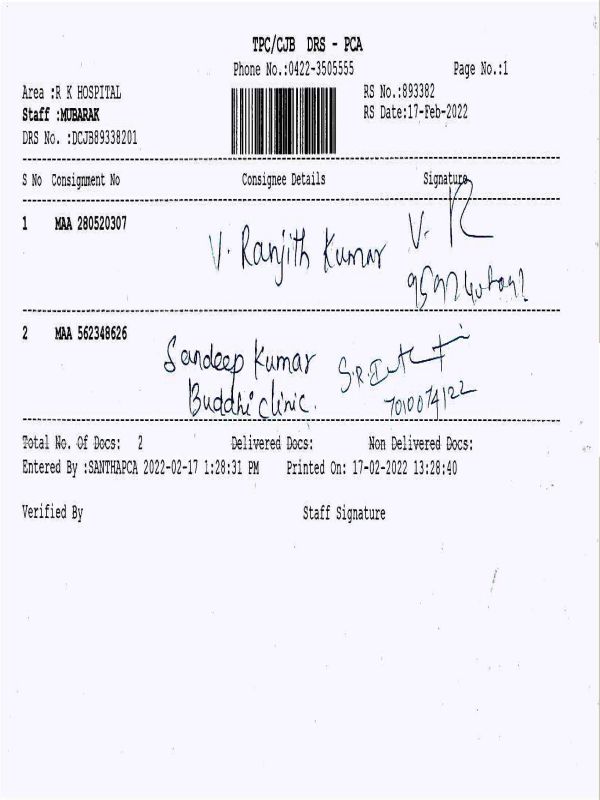 TPC/CJB DRS - PCA
Phone No.:0422-3505555 Page No.:1
Area :R K HOSPITAL RS No.:893382
Staff :MUBARAK RS Date:17-Feb-2022
DRS No. :DCJB89338201
S No Consignment No Consignee Details Signature
1 MAA 280520307
V. Ranjith Kumar V. R
2 MAA 562348626
Sandeep Kumar S.R.
Buddhi clinic. 7010074122
Total No. Of Docs: 2 Delivered Docs: Non Delivered Docs:
Entered By :SANTHAPCA 2022-02-17 1:28:31 PM Printed On: 17-02-2022 13:28:40
Verified By Staff Signature